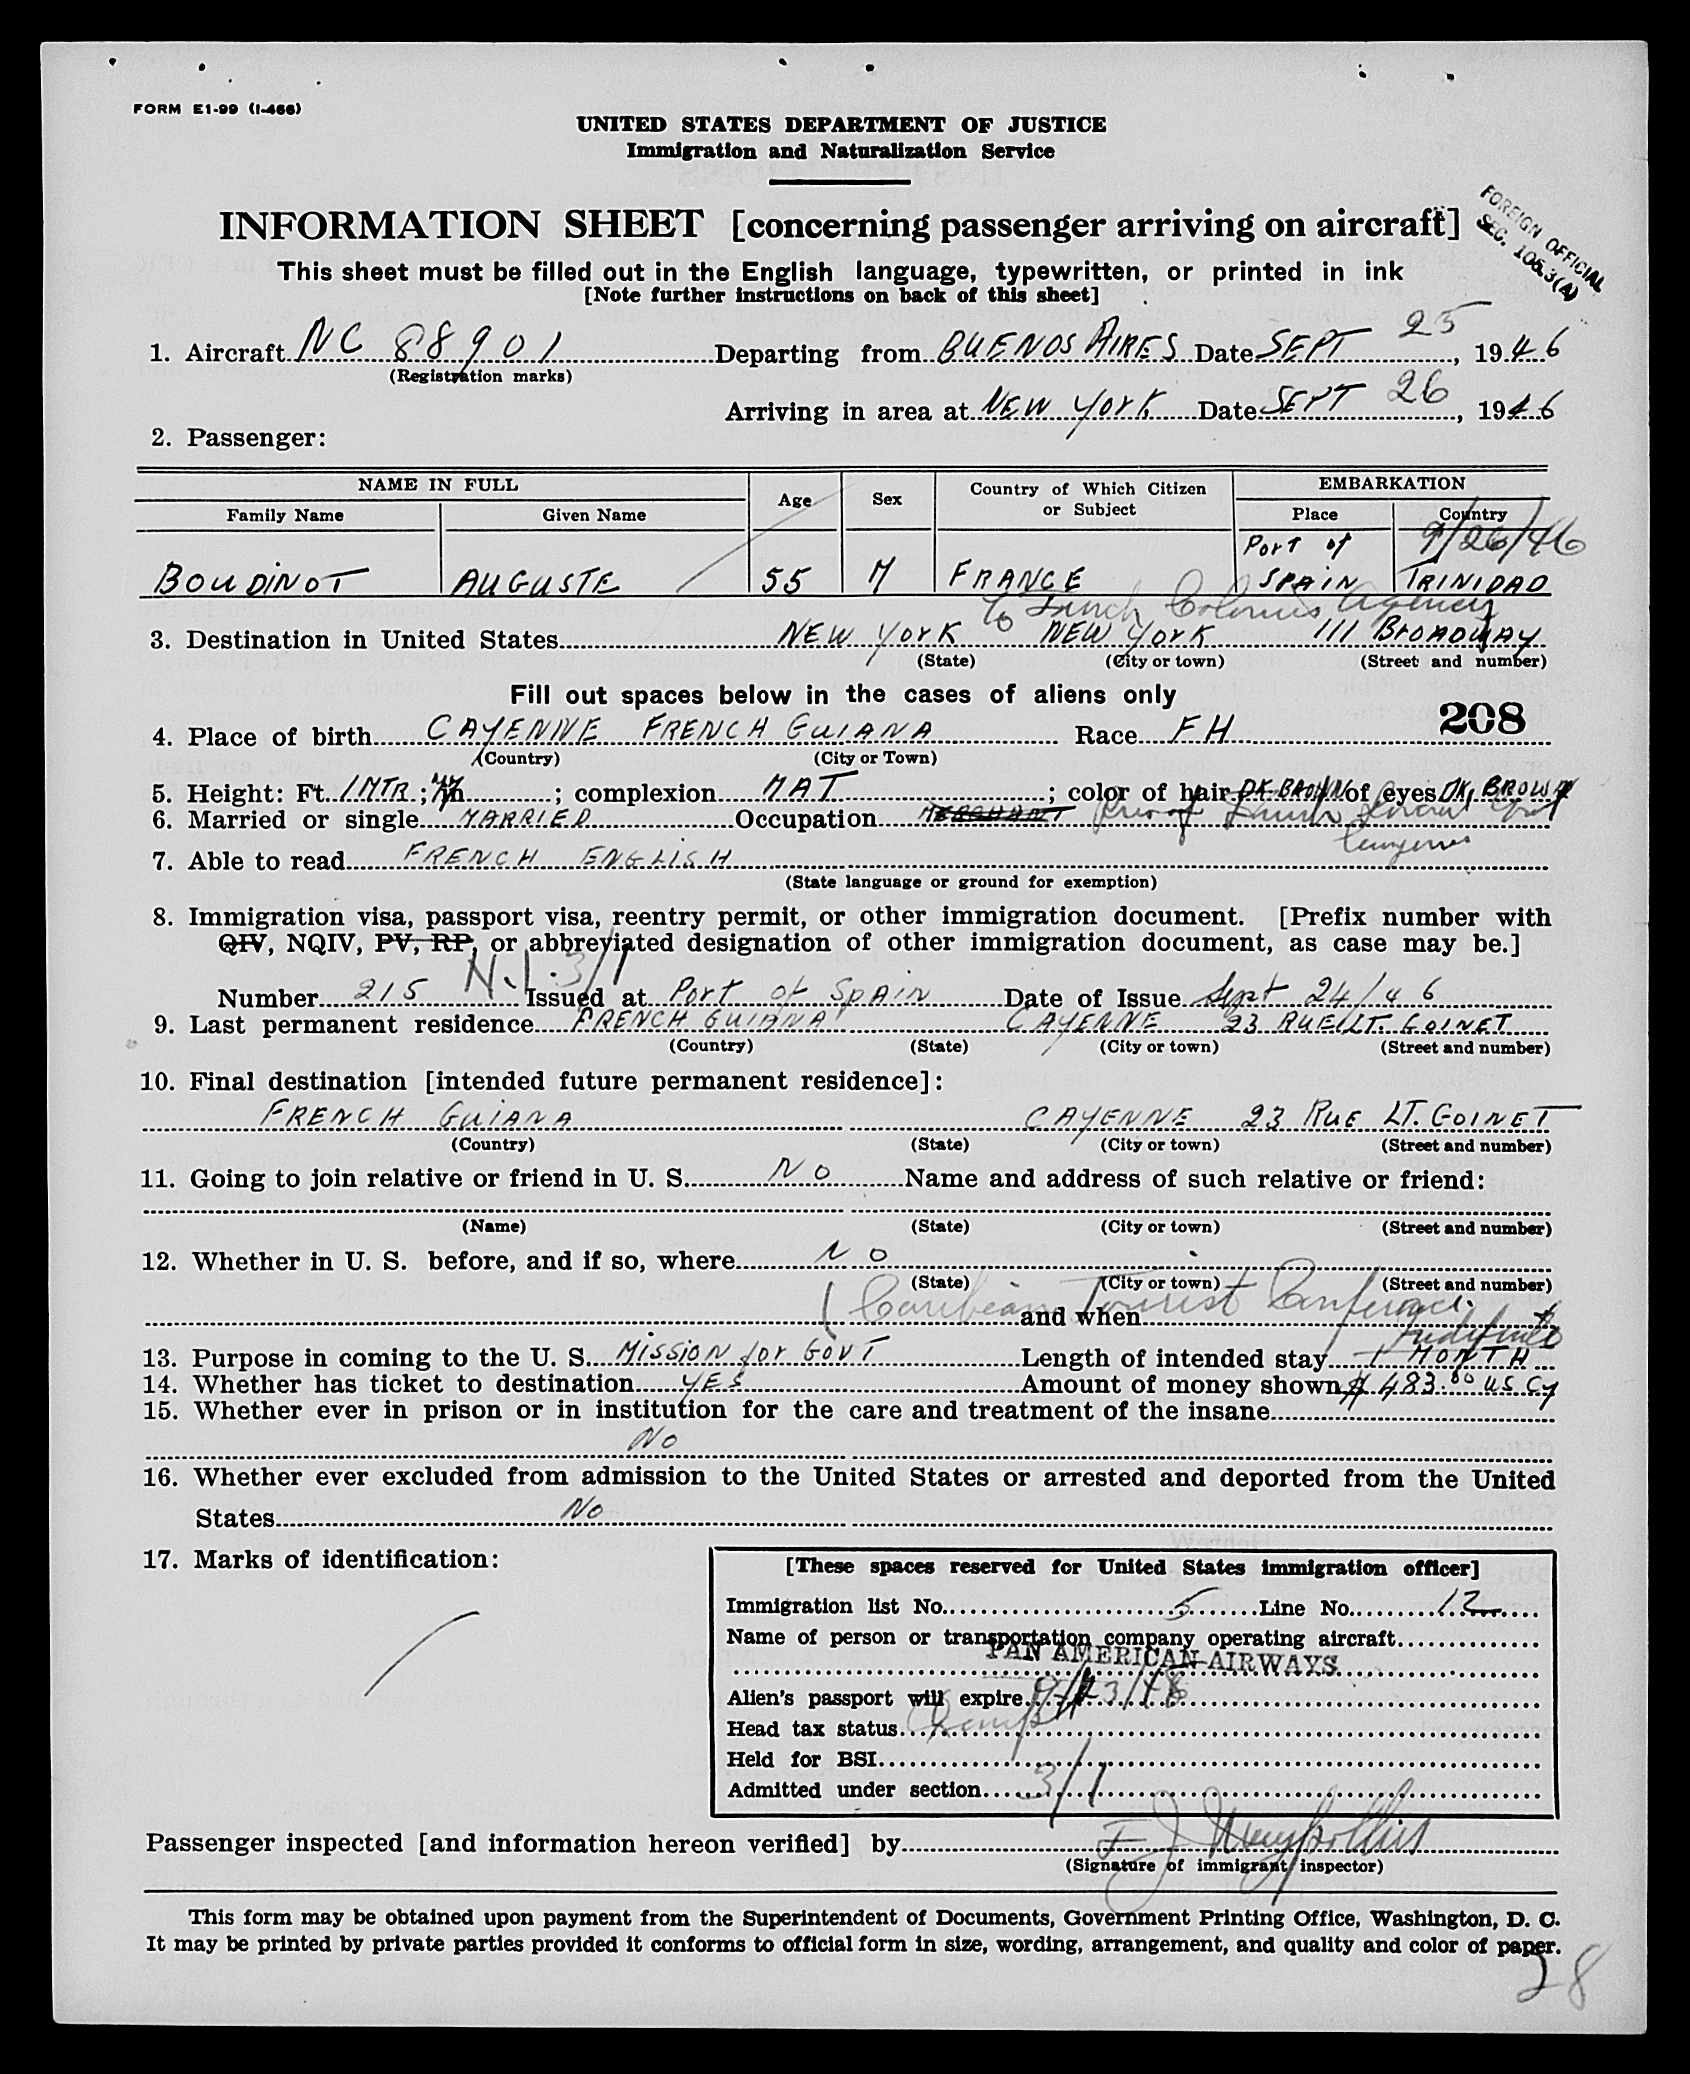 FORM E1-99 (I-466)
UNITED STATES DEPARTMENT OF JUSTICE
Immigration and Naturalization Service
INFORMATION SHEET [concerning passenger arriving on aircraft]
FOREIGN OFFICIAL
SEC. 105.3(A)
This sheet must be filled out in the English language, typewritten, or printed in ink
[Note further instructions on back of this sheet]
1. Aircraft NC 88901 Departing from BUENOS AIRES Date SEPT 25, 1946
(Registration marks)
Arriving in area at NEW YORK Date SEPT 26, 1946
2. Passenger:
NAME IN FULL Age Sex Country of Which Citizen or Subject EMBARKATION
Family Name Given Name Place Country
9/26/46
BOUDINOT AUGUSTE 55 M FRANCE PORT of SPAIN TRINIDAD
Colonies Agency
3. Destination in United States NEW YORK NEW YORK 111 BROADWAY
(State) (City or town) (Street and number)
Fill out spaces below in the cases of aliens only
208
4. Place of birth CAYENNE FRENCH GUIANA Race FH
(Country) (City or Town)
5. Height: Ft. 1 MTR; In ; complexion MAT; color of hair DK BROWN of eyes DK. BROWN
6. Married or single MARRIED Occupation MERCHANT
7. Able to read FRENCH ENGLISH
(State language or ground for exemption)
8. Immigration visa, passport visa, reentry permit, or other immigration document. [Prefix number with
QIV, NQIV, PV, RP, or abbreviated designation of other immigration document, as case may be.]
N.I. 3/1
Number 215 Issued at Port of Spain Date of Issue Sept 24/46
9. Last permanent residence FRENCH GUIANA CAYENNE 23 RUE LT. GOINET
(Country) (State) (City or town) (Street and number)
10. Final destination [intended future permanent residence]:
FRENCH GUIANA CAYENNE 23 RUE LT. GOINET
(Country) (State) (City or town) (Street and number)
11. Going to join relative or friend in U. S. NO Name and address of such relative or friend:
(Name) (State) (City or town) (Street and number)
12. Whether in U. S. before, and if so, where NO
(State) (City or town) (Street and number)
(Caribean Tourist Conference.
and when
Indefinite
13. Purpose in coming to the U. S. MISSION for GOVT Length of intended stay 1 MONTH
14. Whether has ticket to destination YES Amount of money shown $483.00 US Cy
15. Whether ever in prison or in institution for the care and treatment of the insane
NO
16. Whether ever excluded from admission to the United States or arrested and deported from the United
States NO
17. Marks of identification:
[These spaces reserved for United States immigration officer]
Immigration list No. 5 Line No. 12
Name of person or transportation company operating aircraft
PAN AMERICAN AIRWAYS
Alien's passport will expire
Head tax status Exempt
Held for BSI
Admitted under section 3/1
Passenger inspected [and information hereon verified] by
(Signature of immigrant inspector)
This form may be obtained upon payment from the Superintendent of Documents, Government Printing Office, Washington, D. C.
It may be printed by private parties provided it conforms to official form in size, wording, arrangement, and quality and color of paper.
28